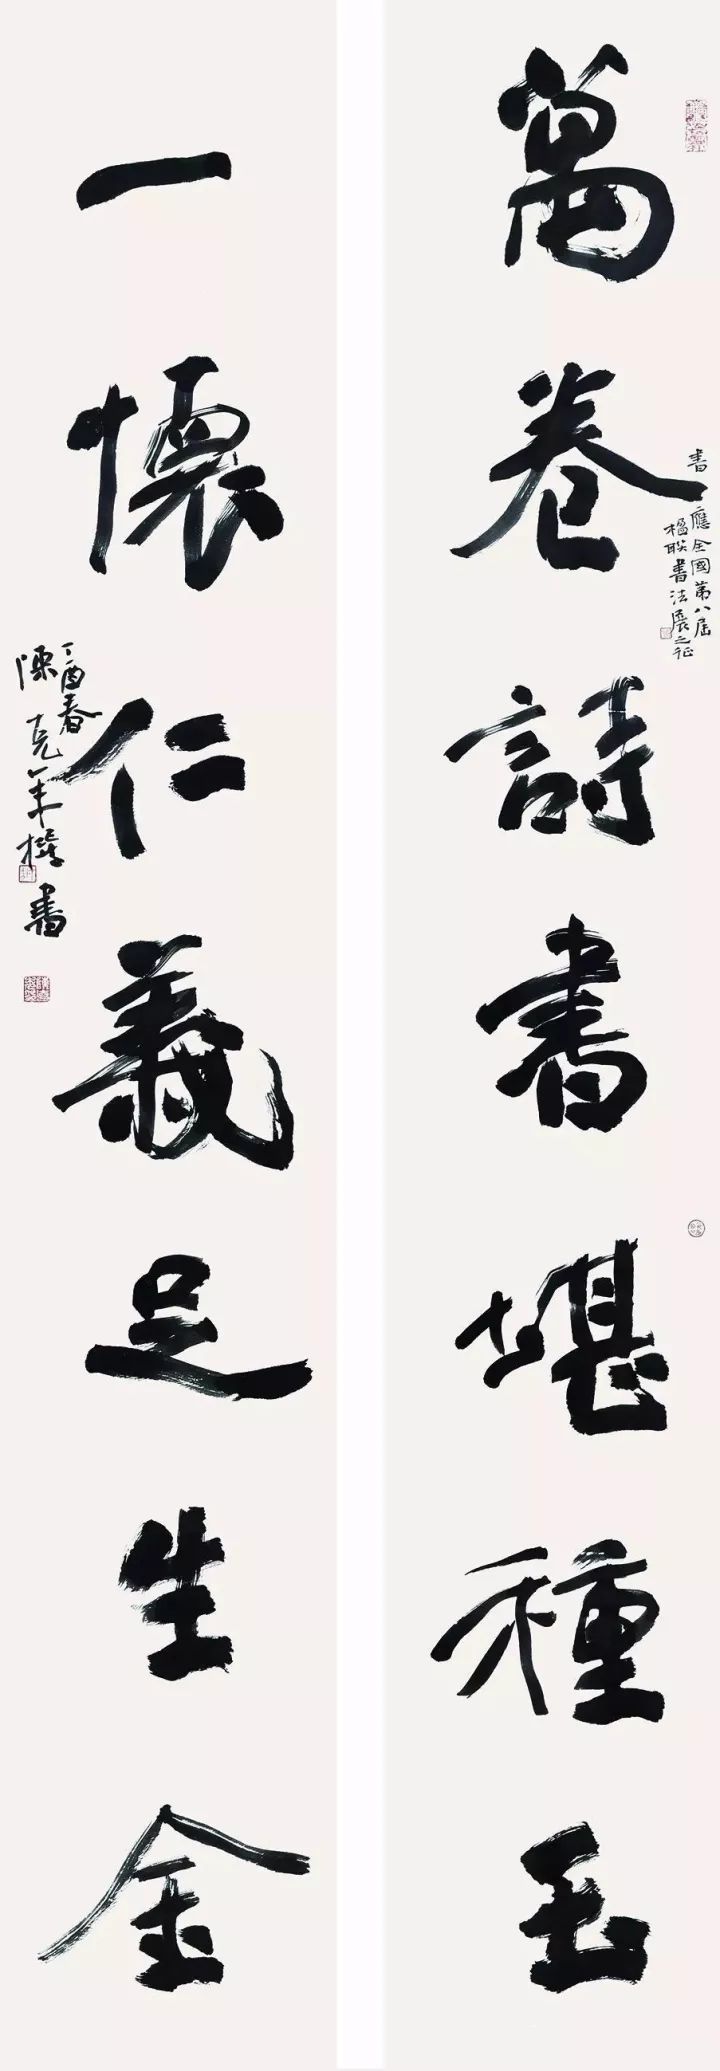 萬卷詩書堪種玉
書應全國第八屆
楹聯書法展之征
一懷仁義足生金
丁酉春
陳克年撰書